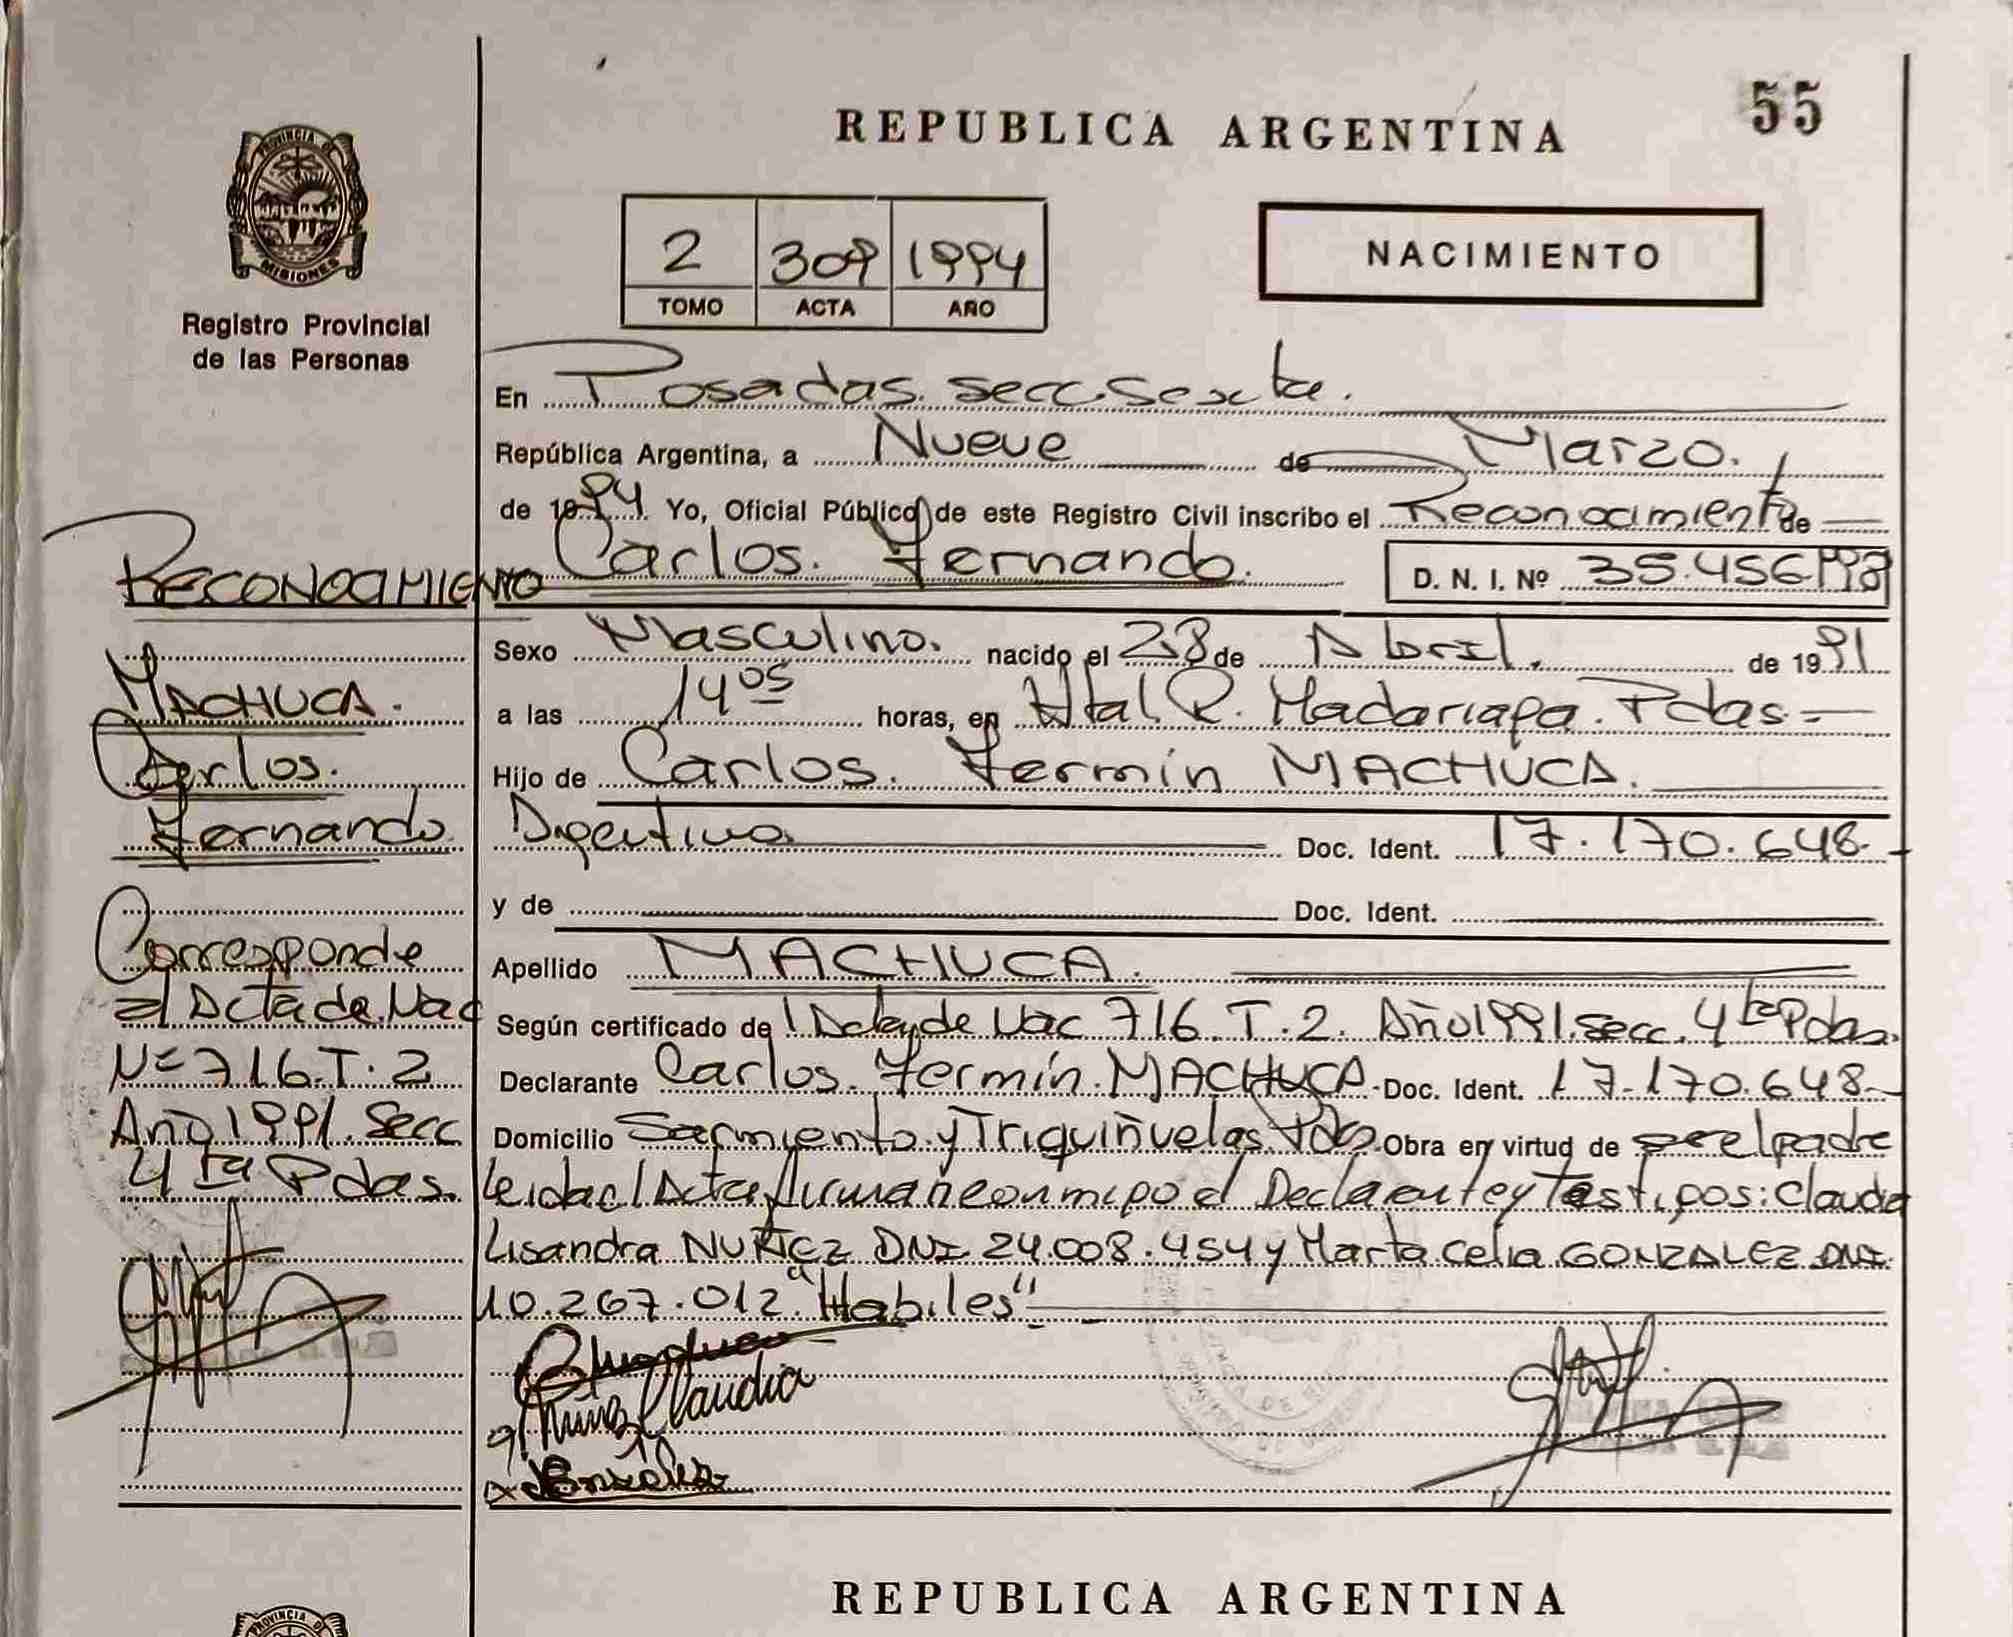 55
REPUBLICA ARGENTINA
PROVINCIA DE
MISIONES
Registro Provincial
de las Personas
2 309 1994
TOMO ACTA AÑO
NACIMIENTO
En Posadas. Secc. Sexta.
República Argentina, a Nueve de Marzo.
de 1994 Yo, Oficial Público de este Registro Civil inscribo el Reconocimiento de
Carlos. Fernando. D. N. I. Nº 35.456.198
Sexo Masculino. nacido el 28 de Abril. de 1991
a las 14 05 horas, en Htal R. Madariaga. Pdas.-
Hijo de Carlos. Fermín MACHUCA.
Argentino Doc. Ident. 17.170.648-
y de Doc. Ident.
Apellido MACHUCA.
Según certificado de Acta de Nac 716. T. 2. Año 1991. Secc. 4ta Pdas.
Declarante Carlos. Fermín. MACHUCA- Doc. Ident. 17.170.648-
Domicilio Sarmiento y Triquiñuelas. Pdas Obra en virtud de ser el padre
Leida el Acta firman conmigo el Declarante y Testigos: Claudia
Lisandra NUÑEZ DNI 24.008.454 y Marta Celia GONZALEZ DNI
10.267.012. "Habiles"
Nuñez Claudia
González
RECONOCIMIENTO
MACHUCA.
Carlos.
Fernando
Corresponde
al Acta de Nac
Nº 716. T. 2
Año 1991. Secc
4ta Pdas.
REPUBLICA ARGENTINA
PROVINCIA DE